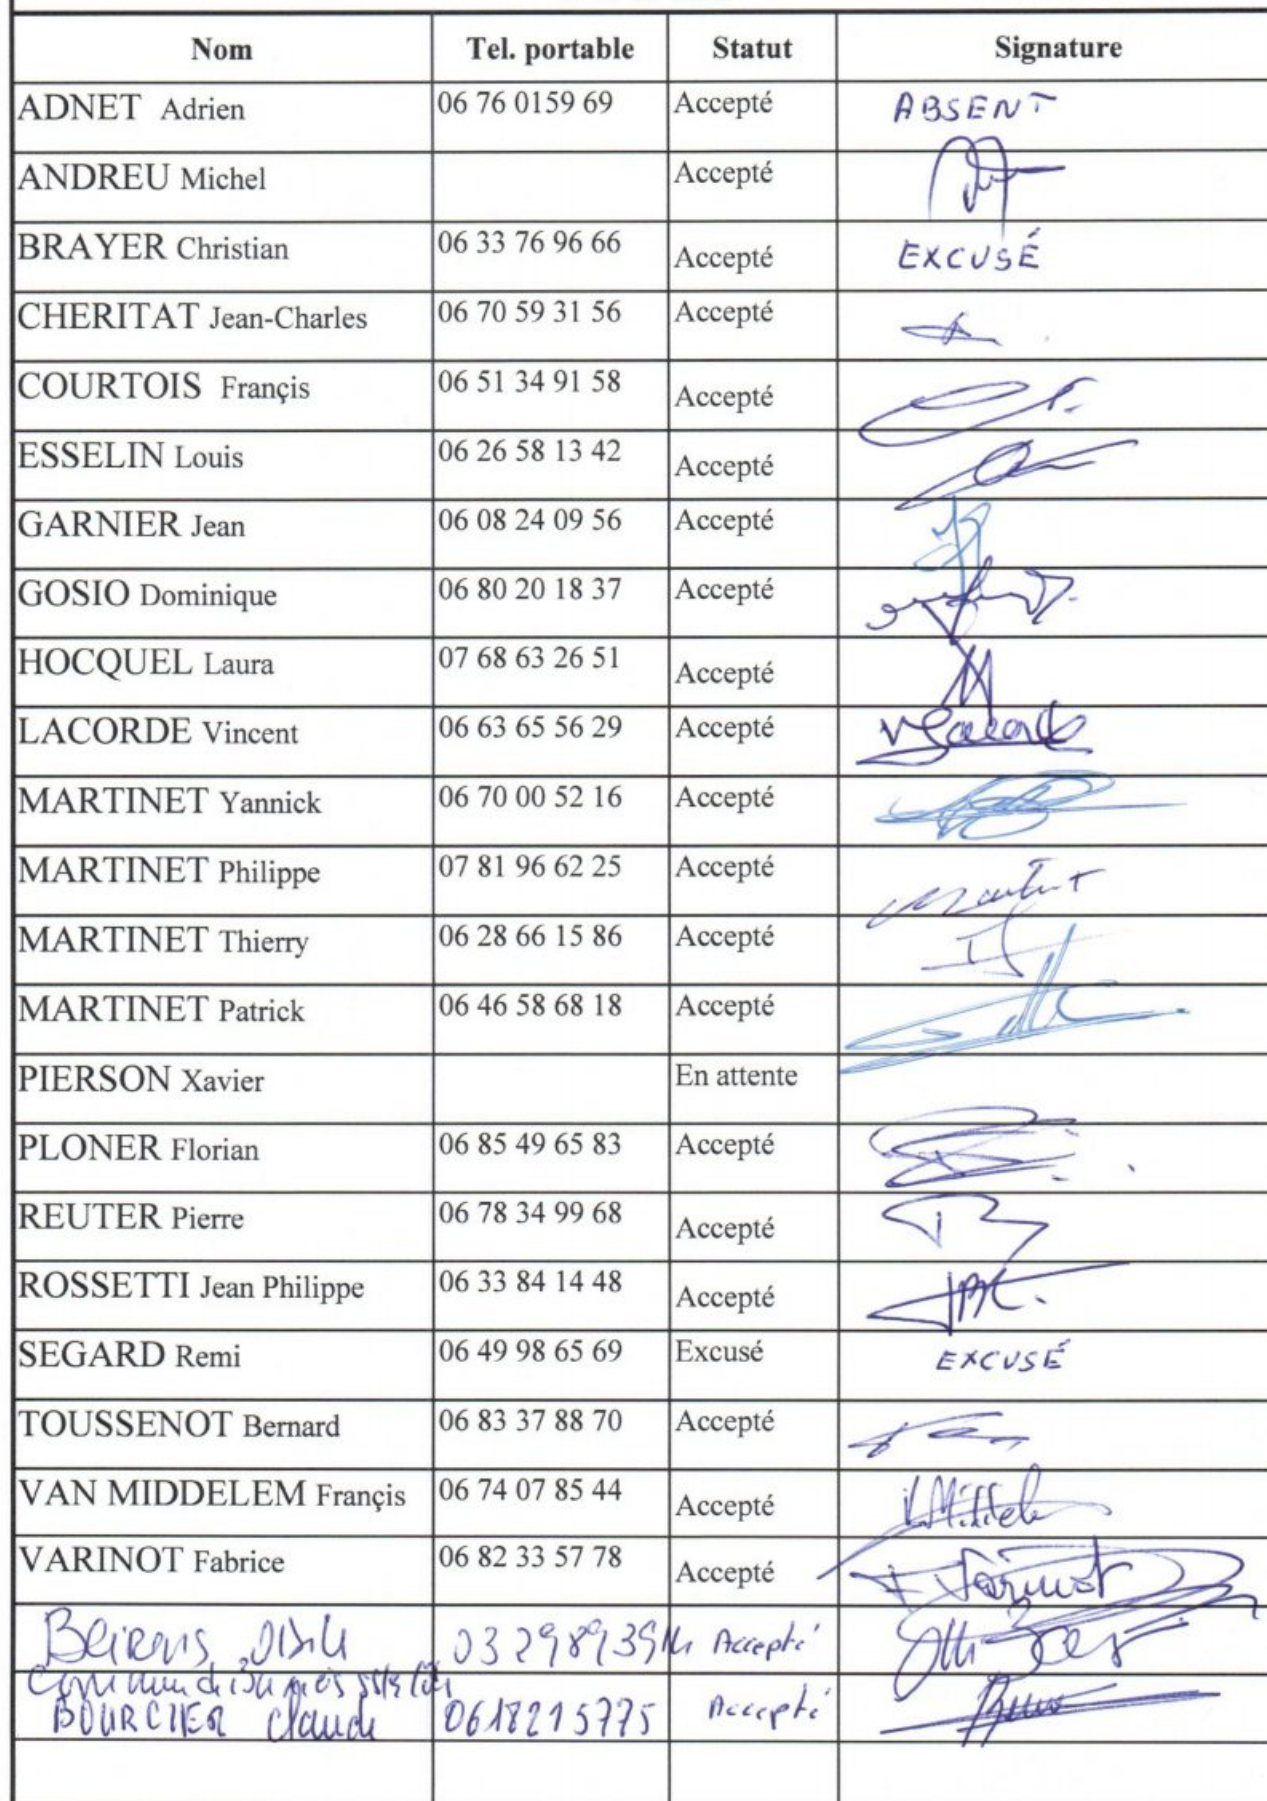 Nom Tel. portable Statut Signature
ADNET Adrien 06 76 0159 69 Accepté ABSENT
ANDREU Michel Accepté
BRAYER Christian 06 33 76 96 66 Accepté EXCUSÉ
CHERITAT Jean-Charles 06 70 59 31 56 Accepté
COURTOIS Françis 06 51 34 91 58 Accepté
ESSELIN Louis 06 26 58 13 42 Accepté
GARNIER Jean 06 08 24 09 56 Accepté
GOSIO Dominique 06 80 20 18 37 Accepté
HOCQUEL Laura 07 68 63 26 51 Accepté
LACORDE Vincent 06 63 65 56 29 Accepté
MARTINET Yannick 06 70 00 52 16 Accepté
MARTINET Philippe 07 81 96 62 25 Accepté
MARTINET Thierry 06 28 66 15 86 Accepté
MARTINET Patrick 06 46 58 68 18 Accepté
PIERSON Xavier En attente
PLONER Florian 06 85 49 65 83 Accepté
REUTER Pierre 06 78 34 99 68 Accepté
ROSSETTI Jean Philippe 06 33 84 14 48 Accepté
SEGARD Remi 06 49 98 65 69 Excusé EXCUSÉ
TOUSSENOT Bernard 06 83 37 88 70 Accepté
VAN MIDDELEM Françis 06 74 07 85 44 Accepté V. Middele
VARINOT Fabrice 06 82 33 57 78 Accepté Varinot
Accepté
BOURCIER Claude 0618215775 Accepté